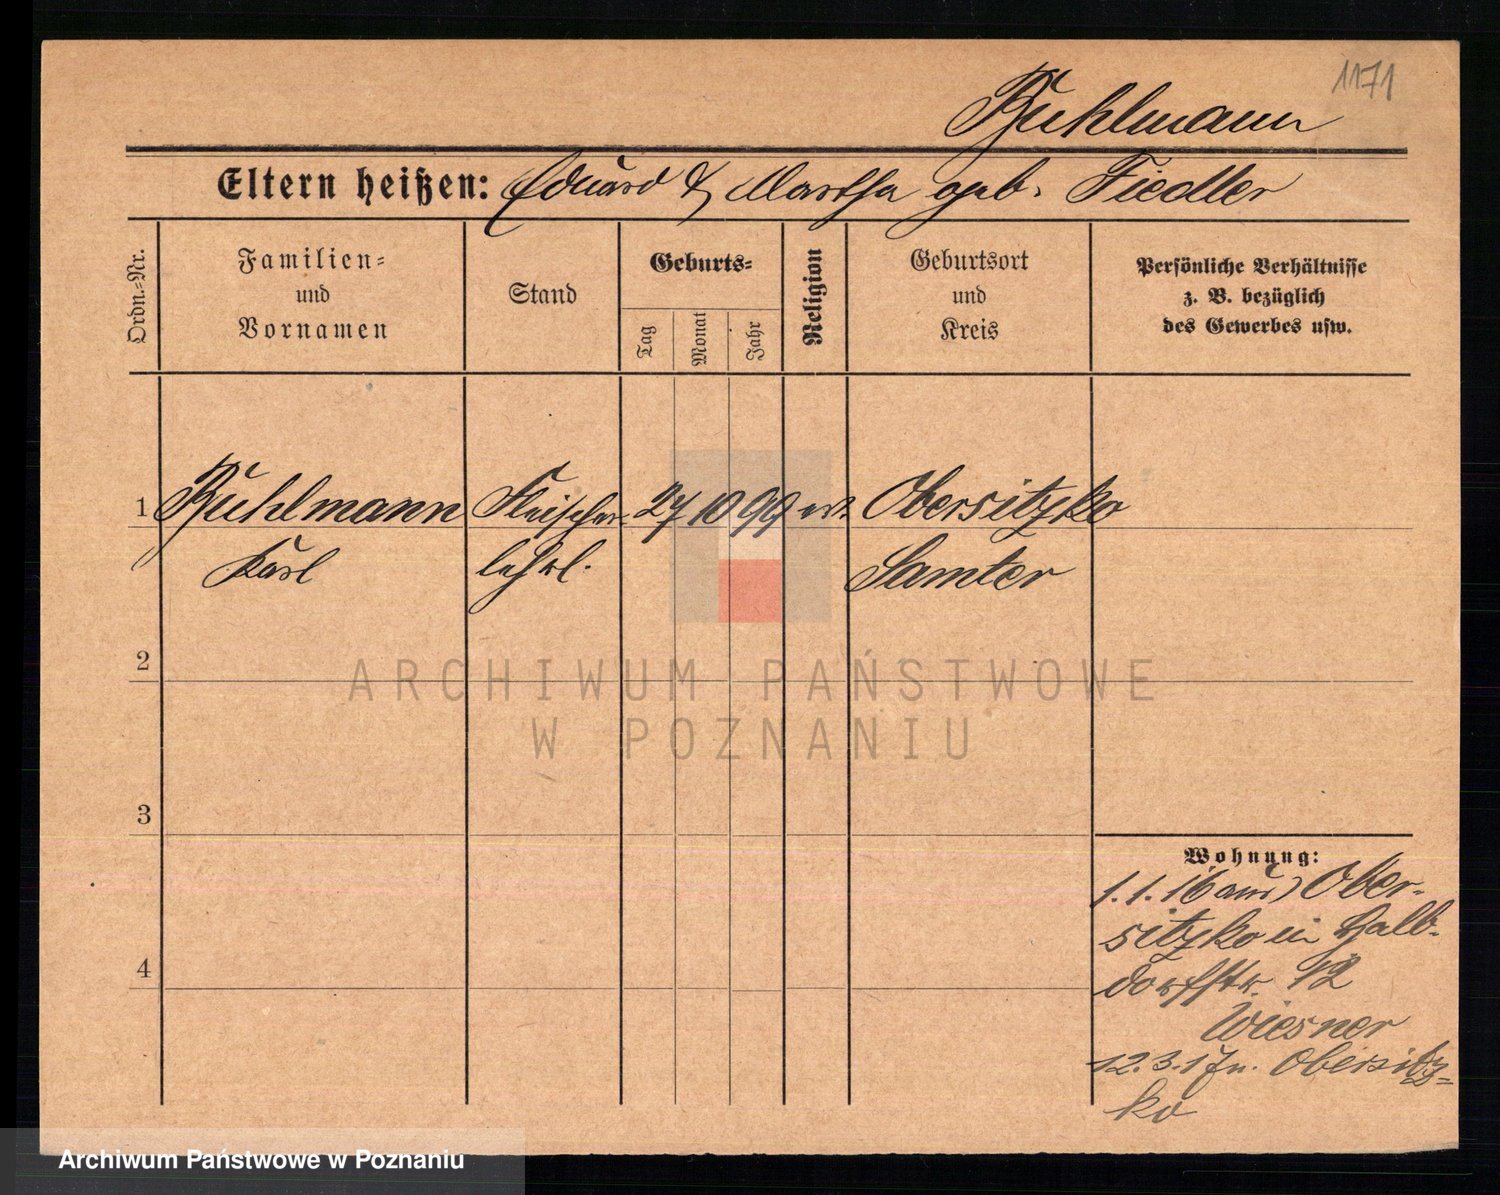 1171
Ruhlmann
Eltern heißen: Eduard & Martha geb. Fiedler
Ordn.-Nr.
Familien-
und
Vornamen
Stand
Geburts-
Tag
Monat
Jahr
Religion
Geburtsort
und
Kreis
Persönliche Verhältnisse
z. B. bezüglich
des Gewerbes usw.
1 Ruhlmann Fleischer- 27 10 99 ev. Obersitzko
Karl lehrl. Samter
2
ARCHIWUM PAŃSTWOWE
W POZNANIU
3
Wohnung:
1.1.16 aus Ober-
sitzko in Halb-
4
dorfstr. 12
Wiesner
12.3.17 n. Obersitz-
ko
Archiwum Państwowe w Poznaniu